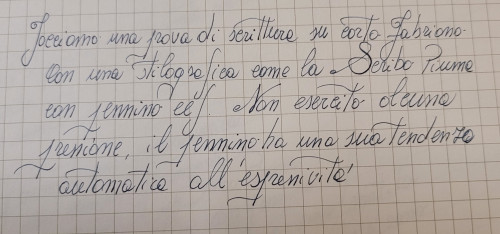 Facciamo una prova di scrittura su carta Fabriano.
Con una stilografica come la Scribo Piuma
con pennino EEF Non esercito alcuna
pressione, il pennino ha una sua tendenza
automatica all'espressività